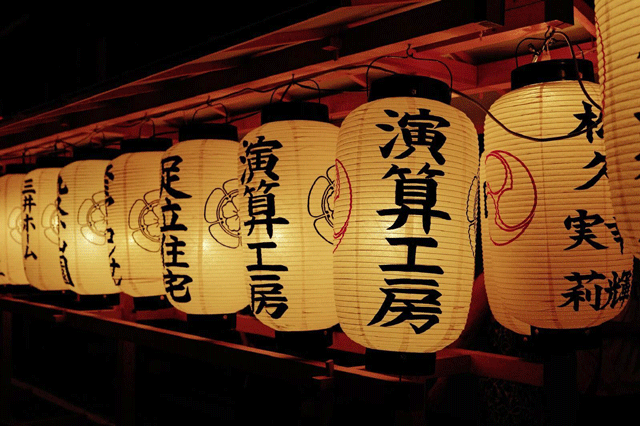 三井ホーム
足立住宅
演算工房
演算工房
久
実
莉
輝